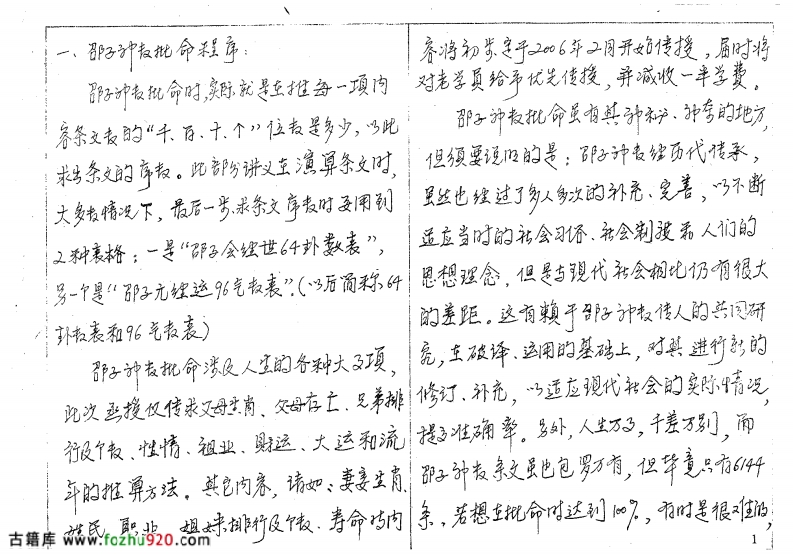 一、邵子神数批命程序：
邵子神数批命时，实际就是在推每一项内
容条文数的“千、百、十、个”位数是多少，以此
求出条文的序数。此部分讲义在演算条文时，
大多数情况下，最后一步求条文序数时要用到
2种表格：一是“邵子会经世64卦数表”，
另一个是“邵子元经运96气数表”。（以后简称64
卦数表和96气数表）
邵子神数批命涉及人生的各种大及项，
此次函授仅传求父母生肖、父母存亡、兄弟排
行及个数、性情、祖业、财运、大运和流
年的推算方法。其它内容，诸如：妻妾生肖、
姓氏、职业、姐妹排行及个数、寿命等内
容将初步定于2006年2月开始传授，届时将
对老学员给予优先传授，并减收一半学费。
邵子神数批命虽有其神秘、神奇的地方，
但须要说明的是：邵子神数经历代传承，
虽然也经过了多人多次的补充、完善，以不断
适应当时的社会习俗、社会制度和人们的
思想理念，但是与现代社会相比仍有很大
的差距。这有赖于邵子神数传人的共同研
究，在破译、运用的基础上，对其进行新的
修订、补充，以适应现代社会的实际情况，
提高准确率。另外，人生万事，千差万别，而
邵子神数条文虽也包罗万有，但毕竟只有6144
条，若想在批命时达到100%，有时是很难的，
1
古籍库 www.fozhu920.com